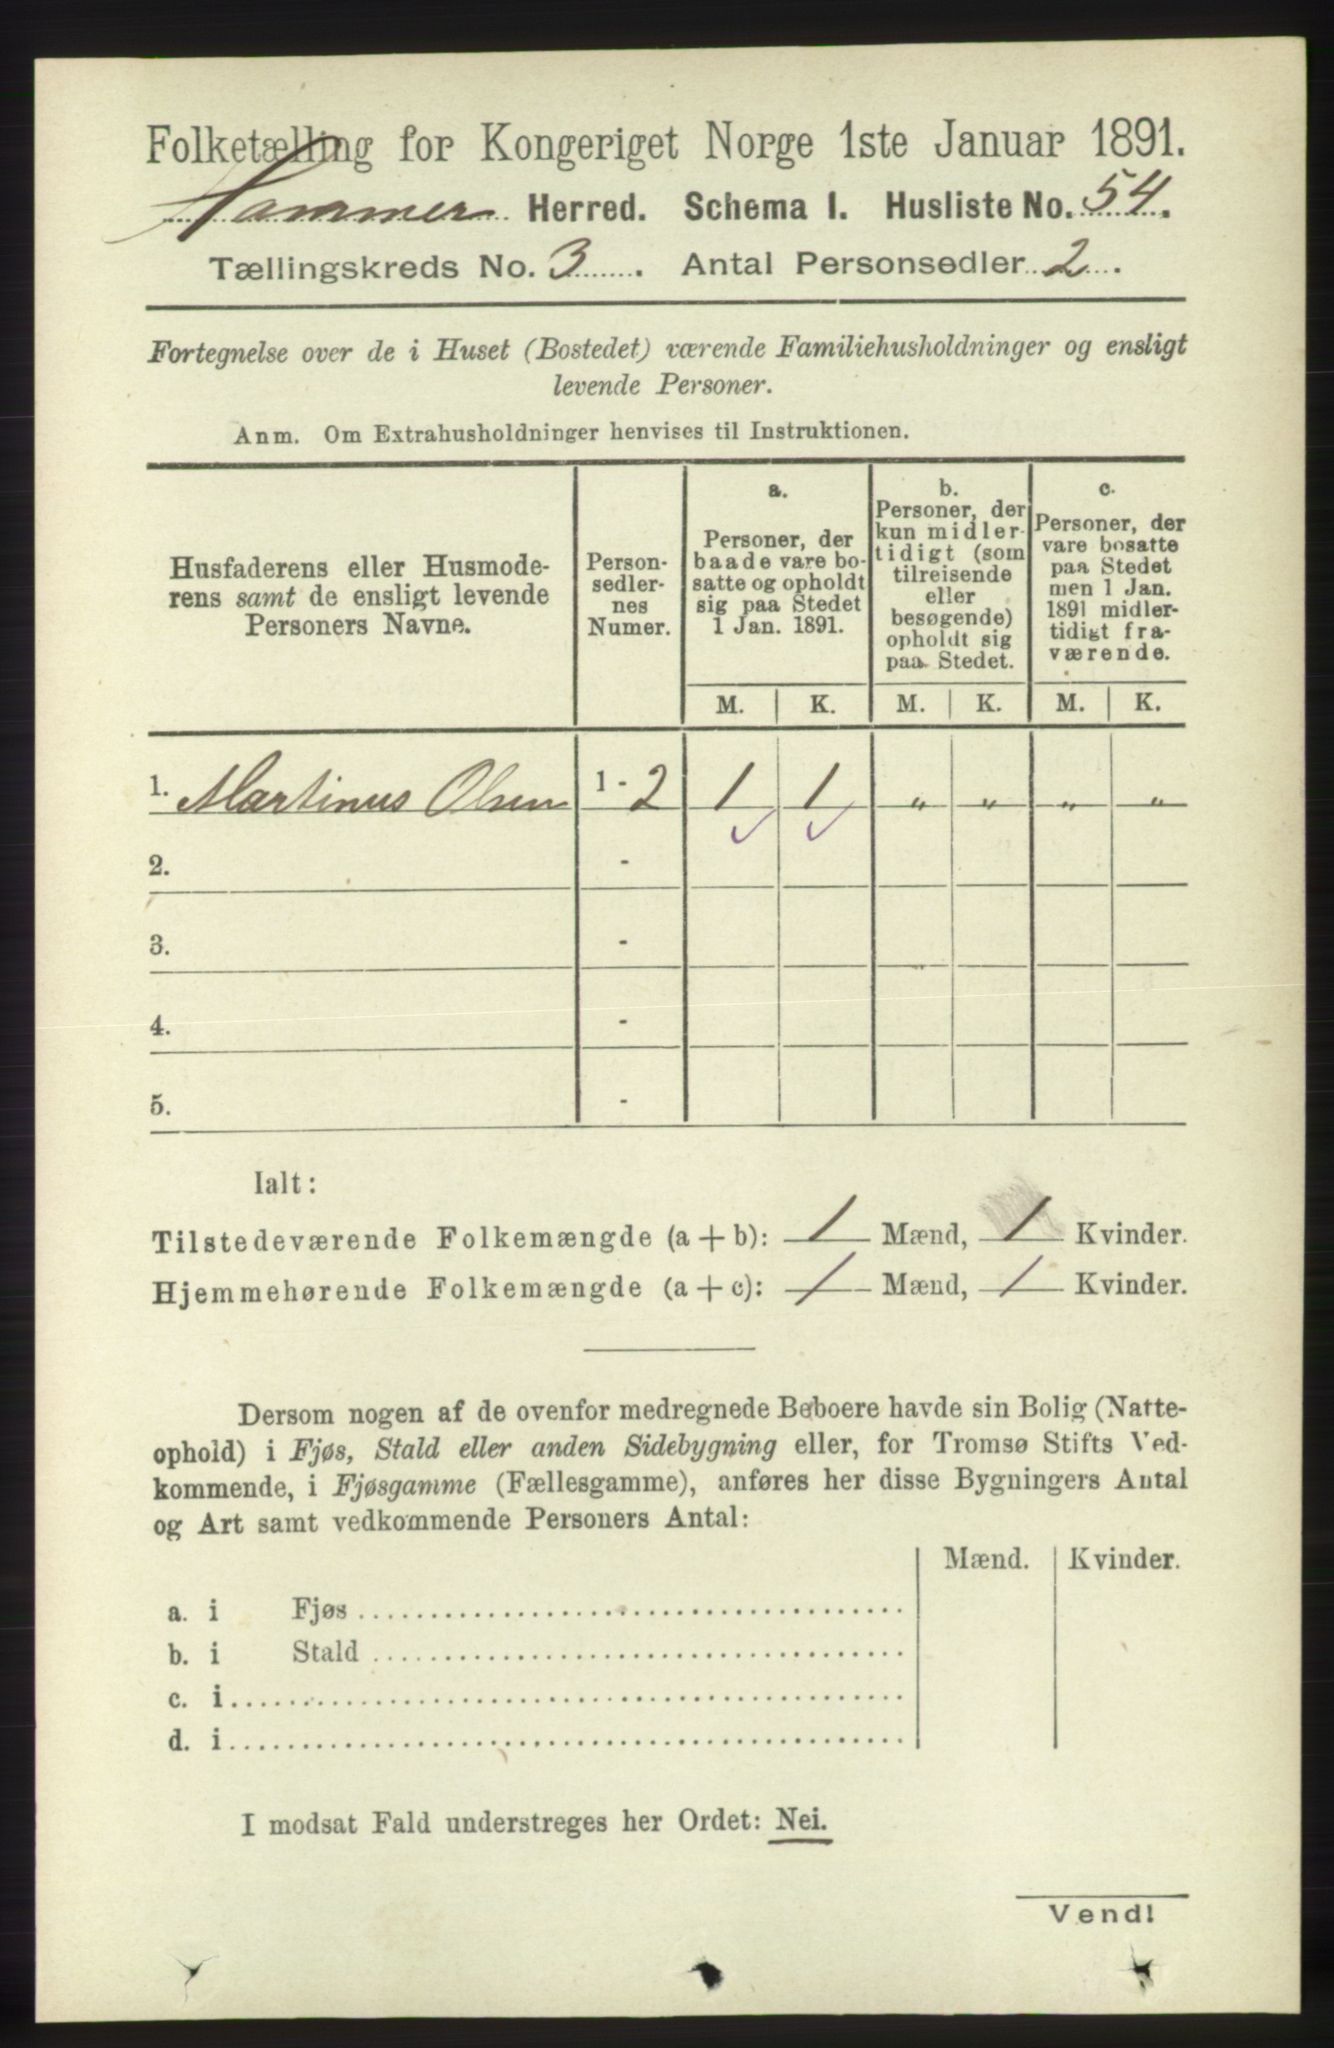 Folketælling for Kongeriget Norge 1ste Januar 1891.
Hammer Herred. Schema I. Husliste No. 54.
Tællingskreds No. 3. Antal Personsedler 2.
Fortegnelse over de i Huset (Bostedet) værende Familiehusholdninger og ensligt
levende Personer.
Anm. Om Extrahusholdninger henvises til Instruktionen.
Husfaderens eller Husmode-
rens samt de ensligt levende
Personers Navne.
Person-
sedler-
nes
Numer.
a.
Personer, der
baade vare bo-
satte og opholdt
sig paa Stedet
1 Jan. 1891.
b.
Personer, der
kun midler-
tidigt (som
tilreisende
eller
besøgende)
opholdt sig
paa Stedet.
c.
Personer, der
vare bosatte
paa Stedet
men 1 Jan.
1891 midler-
tidigt fra-
værende.
M. K. M. K. M. K.
1. Martinus Olsen 1 - 2 1 1 „ „ „ „
2. -
3. -
4. -
5. -
Ialt:
Tilstedeværende Folkemængde (a + b): 1 Mænd, 1 Kvinder.
Hjemmehørende Folkemængde (a + c): 1 Mænd, 1 Kvinder.
Dersom nogen af de ovenfor medregnede Beboere havde sin Bolig (Natte-
ophold) i Fjøs, Stald eller anden Sidebygning eller, for Tromsø Stifts Ved-
kommende, i Fjøsgamme (Fællesgamme), anføres her disse Bygningers Antal
og Art samt vedkommende Personers Antal:
Mænd. Kvinder.
a. i Fjøs
b. i Stald
c. i
d. i
I modsat Fald understreges her Ordet: Nei.
Vend!